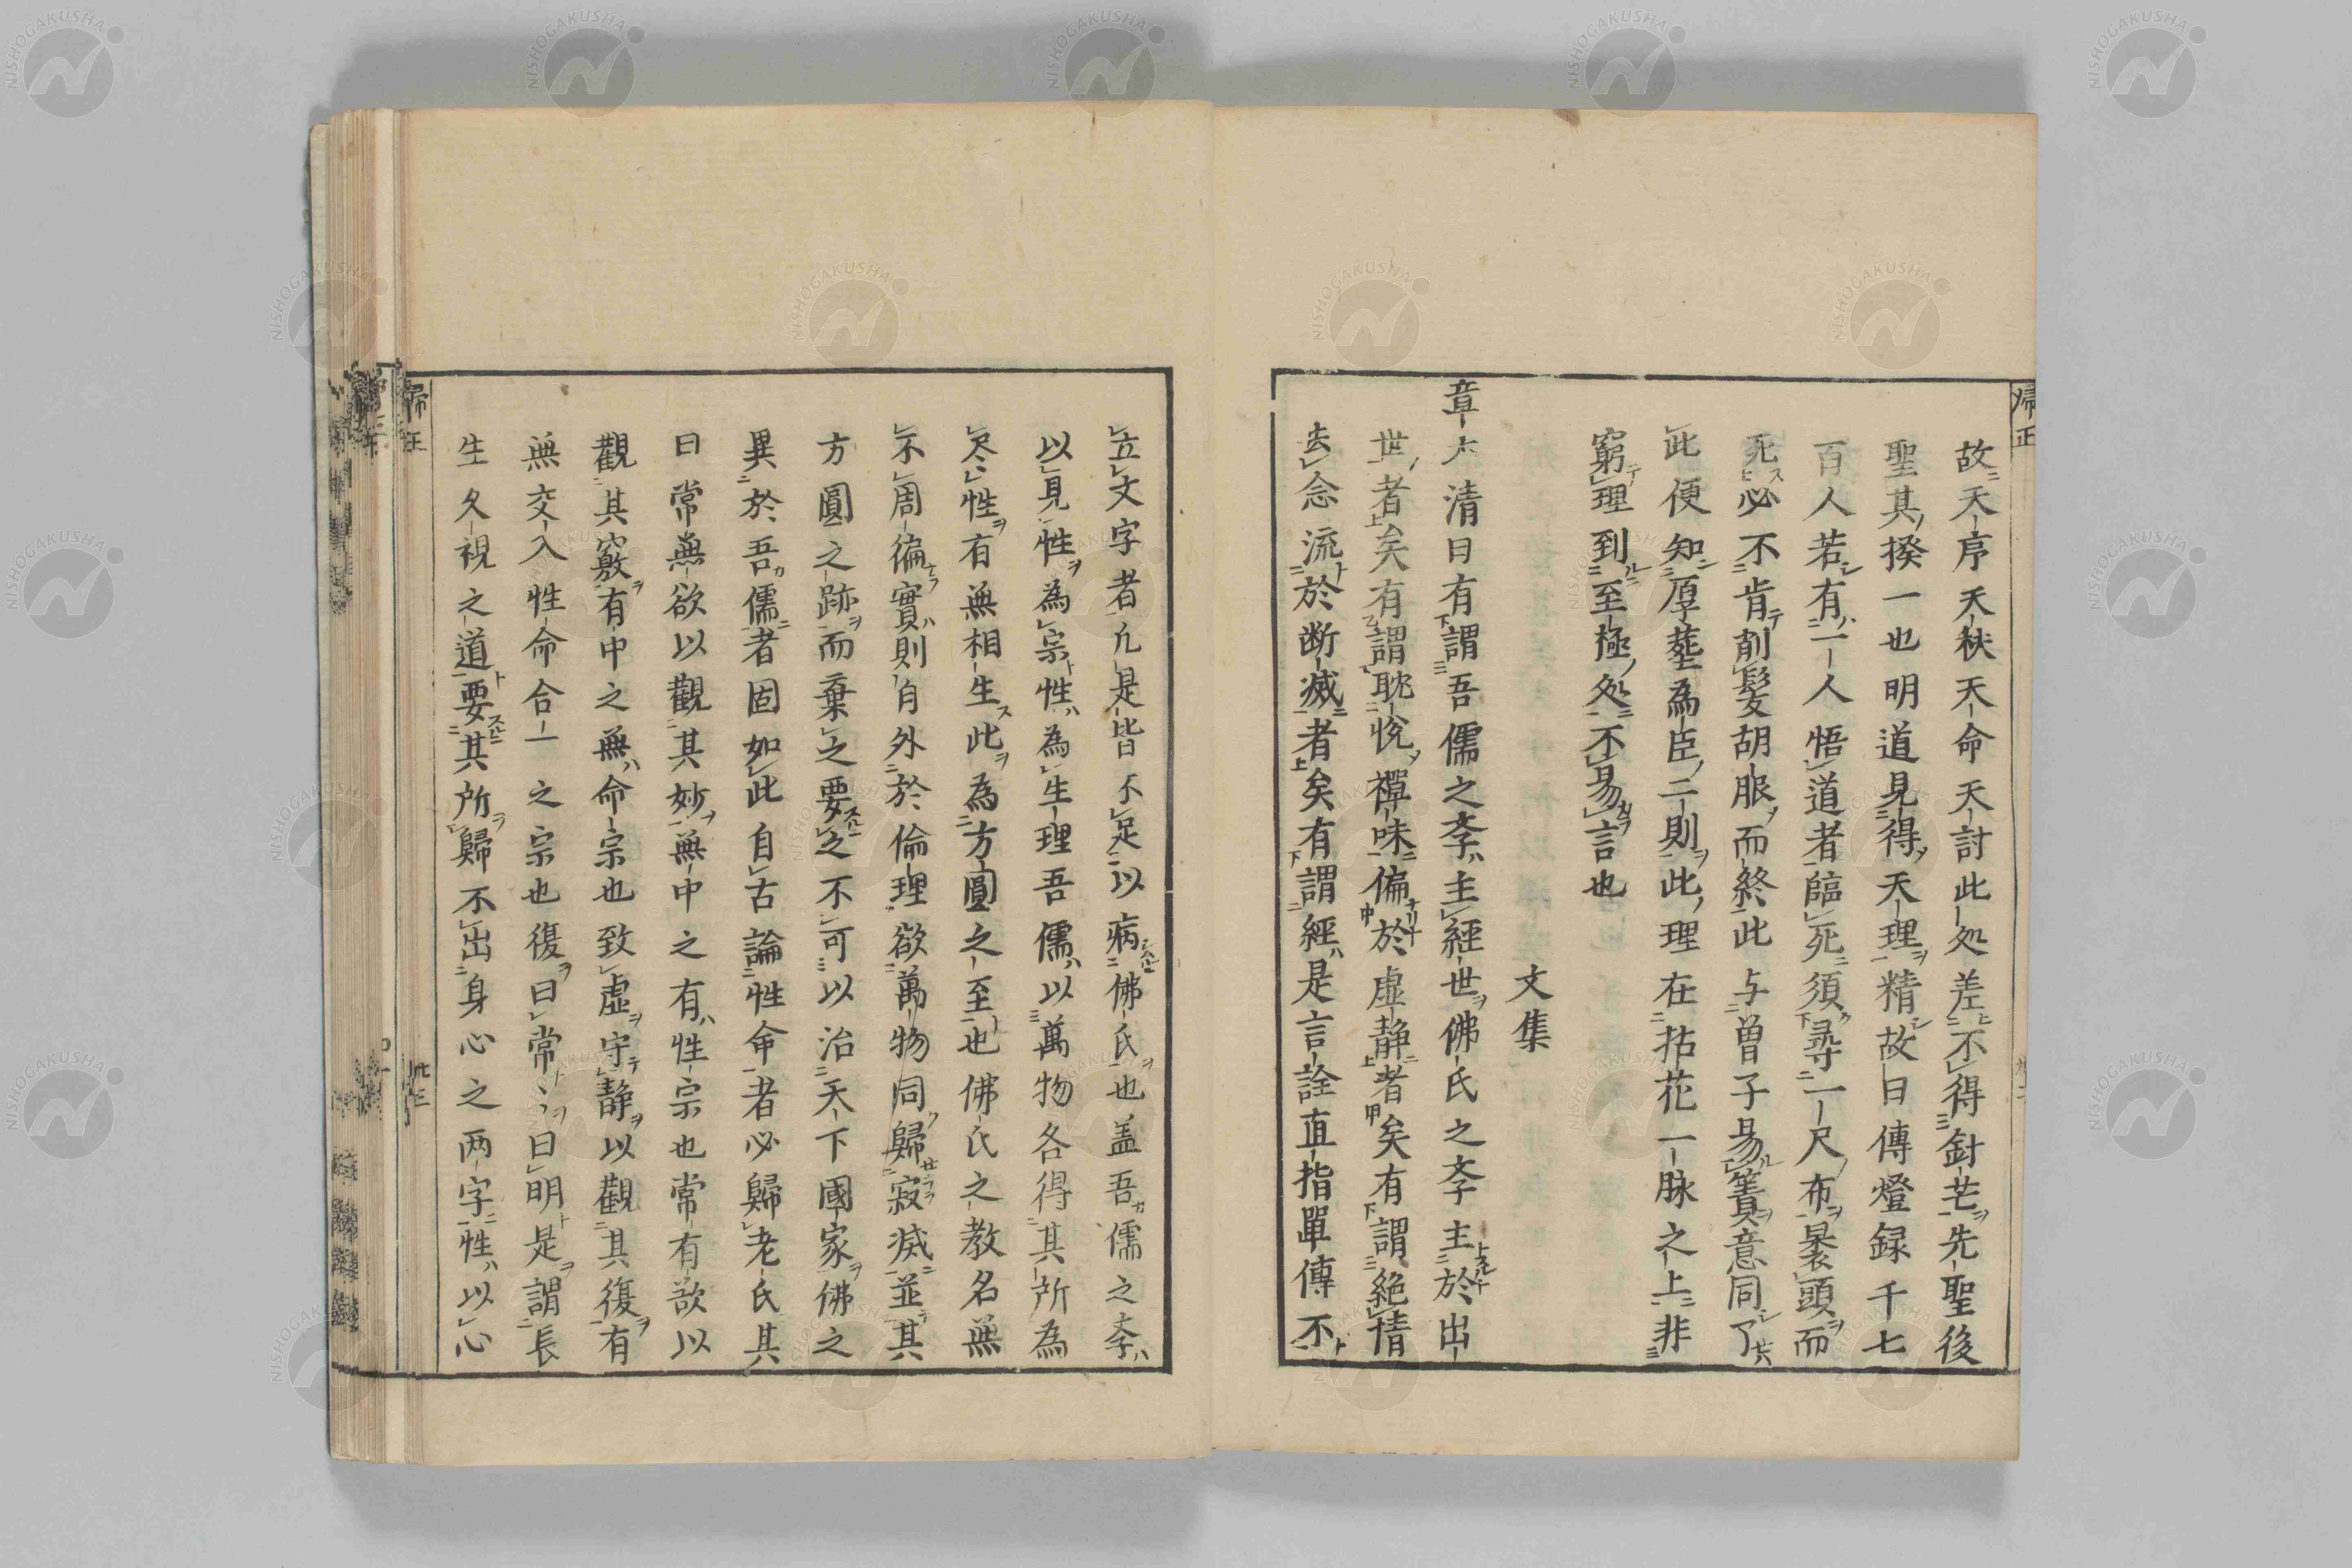 故天序天秩天命天討此処差不得針芒先聖後
聖其揆一也明道見得天理精故曰傳燈録千七
百人若有一人悟道者臨死須尋一尺布裹頭而
死必不肯削髪胡服而終此与曽子易簀意同了
此便知厚塟為臣二則此理在拈花一脉之上非
窮理到至極処不易言也
文集
章大清曰有謂吾儒之斈主經世佛氏之斈主於出
世者矣有謂耽悦禪味偏於虚静者矣有謂絶情
去念流於断滅者矣有謂經是言詮直指單傳不
立文字者凢是皆不足以病佛氏也盖吾儒之斈
以見性為宗性為生理吾儒以萬物各得其所為
尽性有無相生此為方圓之至也佛氏之教名無
不周徧實則自外於倫理欲萬物同歸寂滅並其
方圓之跡而棄之要之不可以治天下國家佛之
異於吾儒者固如此自古論性命者必歸老氏其
曰常無欲以觀其妙無中之有性宗也常有欲以
觀其竅有中之無命宗也致虚守静以觀其復有
無交入性命合一之宗也復曰常〻曰明是謂長
生久視之道要其所歸不出身心之两字性以心
帰正
帰正
卅三
NISHOGAKUSHA